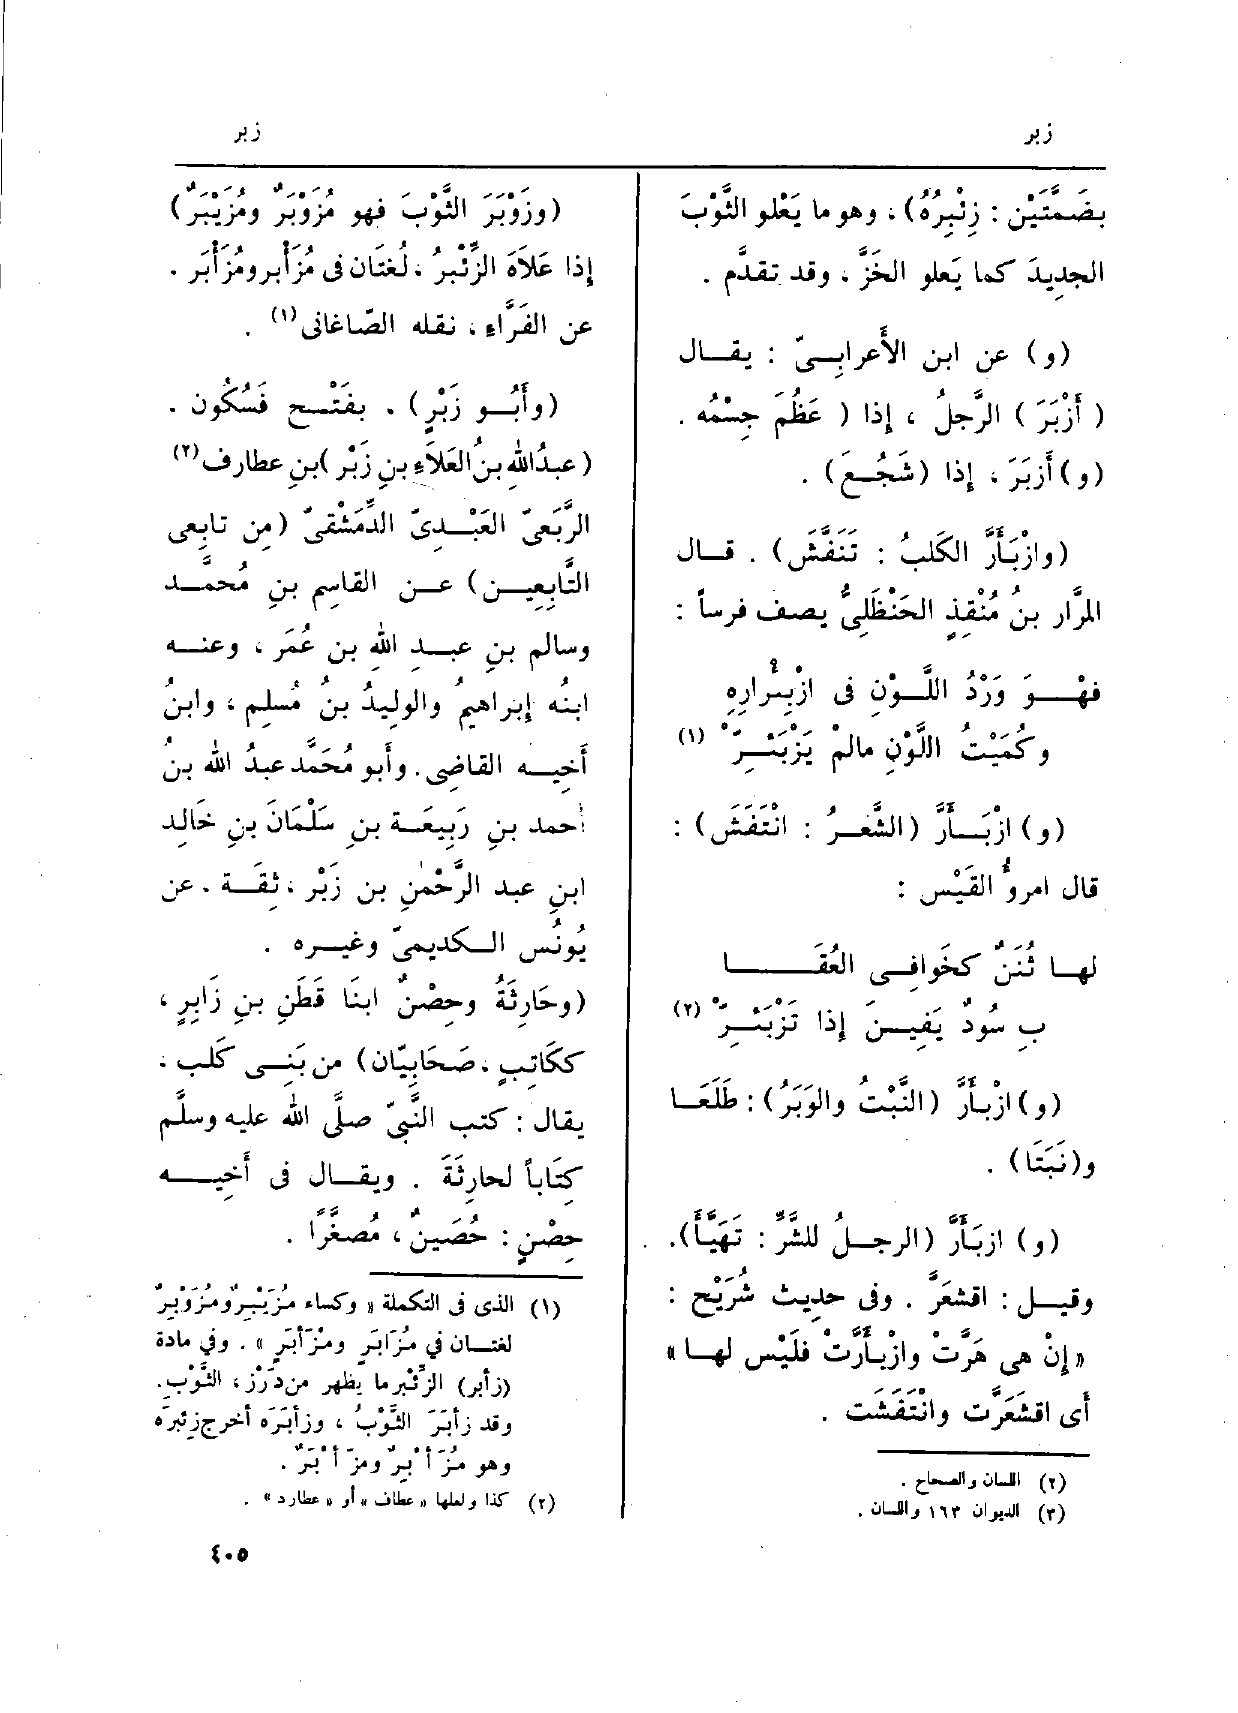 زبر
زبر
بضَمَّتَيْن : زِئْبِرُهُ) ، وهو ما يَعْلو الثَّوْبَ
الجديِدَ كما يَعلو الخَزَّ ، وقد تقدَّم .
(و) عن ابن الأَعرابِــىّ : يقــال
( أَزْبَرَ ) الرَّجلُ ، إِذا ( عَظُمَ جِسْمُه .
(و) أَزبَرَ ، إِذا (شَجُــعَ) .
(وازْبَأَرَّ الكَلبُ : تَنَفَّشَ) . قــال
المرَّار بنُ مُنْقِذٍ الحَنْظَلِىُّ يصف فرساً :
فهْــــوَ وَرْدُ اللَّــوْنِ فى ازْبِئْرارِهِ
وكُمَيْتُ اللَّوْنِ مالمْ يَزْبَئِــرّْ (١)
(و) ازْبَــأَرَّ (الشَّعــرُ : انْتَفَشَ) :
قال امروُ القَيْس :
لهــا ثُنَنٌ كخَوافِــى العُقَــــــا
بِ سُودٌ يَفِيــنَ إِذا تَزْبَئِــرّْ (٢)
(و) ازْبأَرَّ (النَّبْتُ والوَبَرُ) : طَلَعَــا
و(نَبَتَا) .
(و) ازبَأَرَّ (الرجــلُ للشَّرِّ : تَهَيَّأَ).
وقيــل : اقشعَرَّ . وفى حديث شُرَيْح :
« إِنْ هى هَرَّتْ وازْبــأَرَّتْ فلَيْس لهــا »
أَى اقشَعَرَّت وانْتَفَشَت .
(٢) اللسان والصحاح .
(٣) الديوان ١٦٣ واللسان .
(وزَوْبَرَ الثَّوْبَ فهو مُزَوْبَرٌ ومُزَيْبَرٌ)
إِذا عَلاَهَ الزِّئْبِرُ ، لُغتَان فى مُزَأْبِر ومُزَأْبَر .
عن الفَرَّاءِ ، نقله الصّاغانى (١) .
(وأَبُــو زَبْرٍ) . بفَتْــح فَسُكُون .
( عبدُ الله بنُ العَلاَءِ بنِ زَبْر ) بنِ عطارف (٢)
الرَّبَعىّ العَبْــدىّ الدِّمَشْقىّ (مِن تابعى
التَّابِعِيــن) عــن القاسِم بنِ مُحمَّــد
وسالم بنِ عبــدِ اللهِ بنِ عُمَرَ ، وعنــه
ابنُه إِبراهيمُ والوليدُ بنُ مُسلِم ، وابنُ
أَخِيــه القاضِى. وأَبو مُحَمَّد عبدُ الله بنُ
أَحمد بنِ رَبِيعَــة بنِ سَلْمَانَ بنِ خَالِد
ابنِ عبد الرَّحْمٰنِ بن زَبْر ، ثِقَــة . عن
يُونُس الــكديمىّ وغيــره .
(وحَارِثَةُ وحِصْنٌ ابنَا قَطَنِ بنِ زَابِرٍ ،
ككَاتِبٍ ، صَحَابِيّان) من بَنِــى كَلب .
يقال : كتب النَّبىّ صلَّى الله عليه وسلَّم
كِتَاباً لحارِثَةَ . ويقــال فى أَخِيــــه
حِصْنٍ : حُصَينٌ ، مُصغَّرًا .
(١) الذى فى التكملة « وكساء مُزَيْبِرٌ ومُزَوْبِرٌ
لغتــان في مُزَابَرٍ ومُزَأبَرٍ » . وفي مادة
(زأبر) الزِّئْبر ما يظهر من دَرْزِ ، الثَّوْبِ.
وقد زَأبَرَ الثَّوْبُ ، وزَأبَرَه أخرج زئبرَه
وهو مُزَأبِرٌ ومزَأبَرٌ .
(٢) كذا ولعلها « عطاف » أو « عطارد » .
٤٠٥